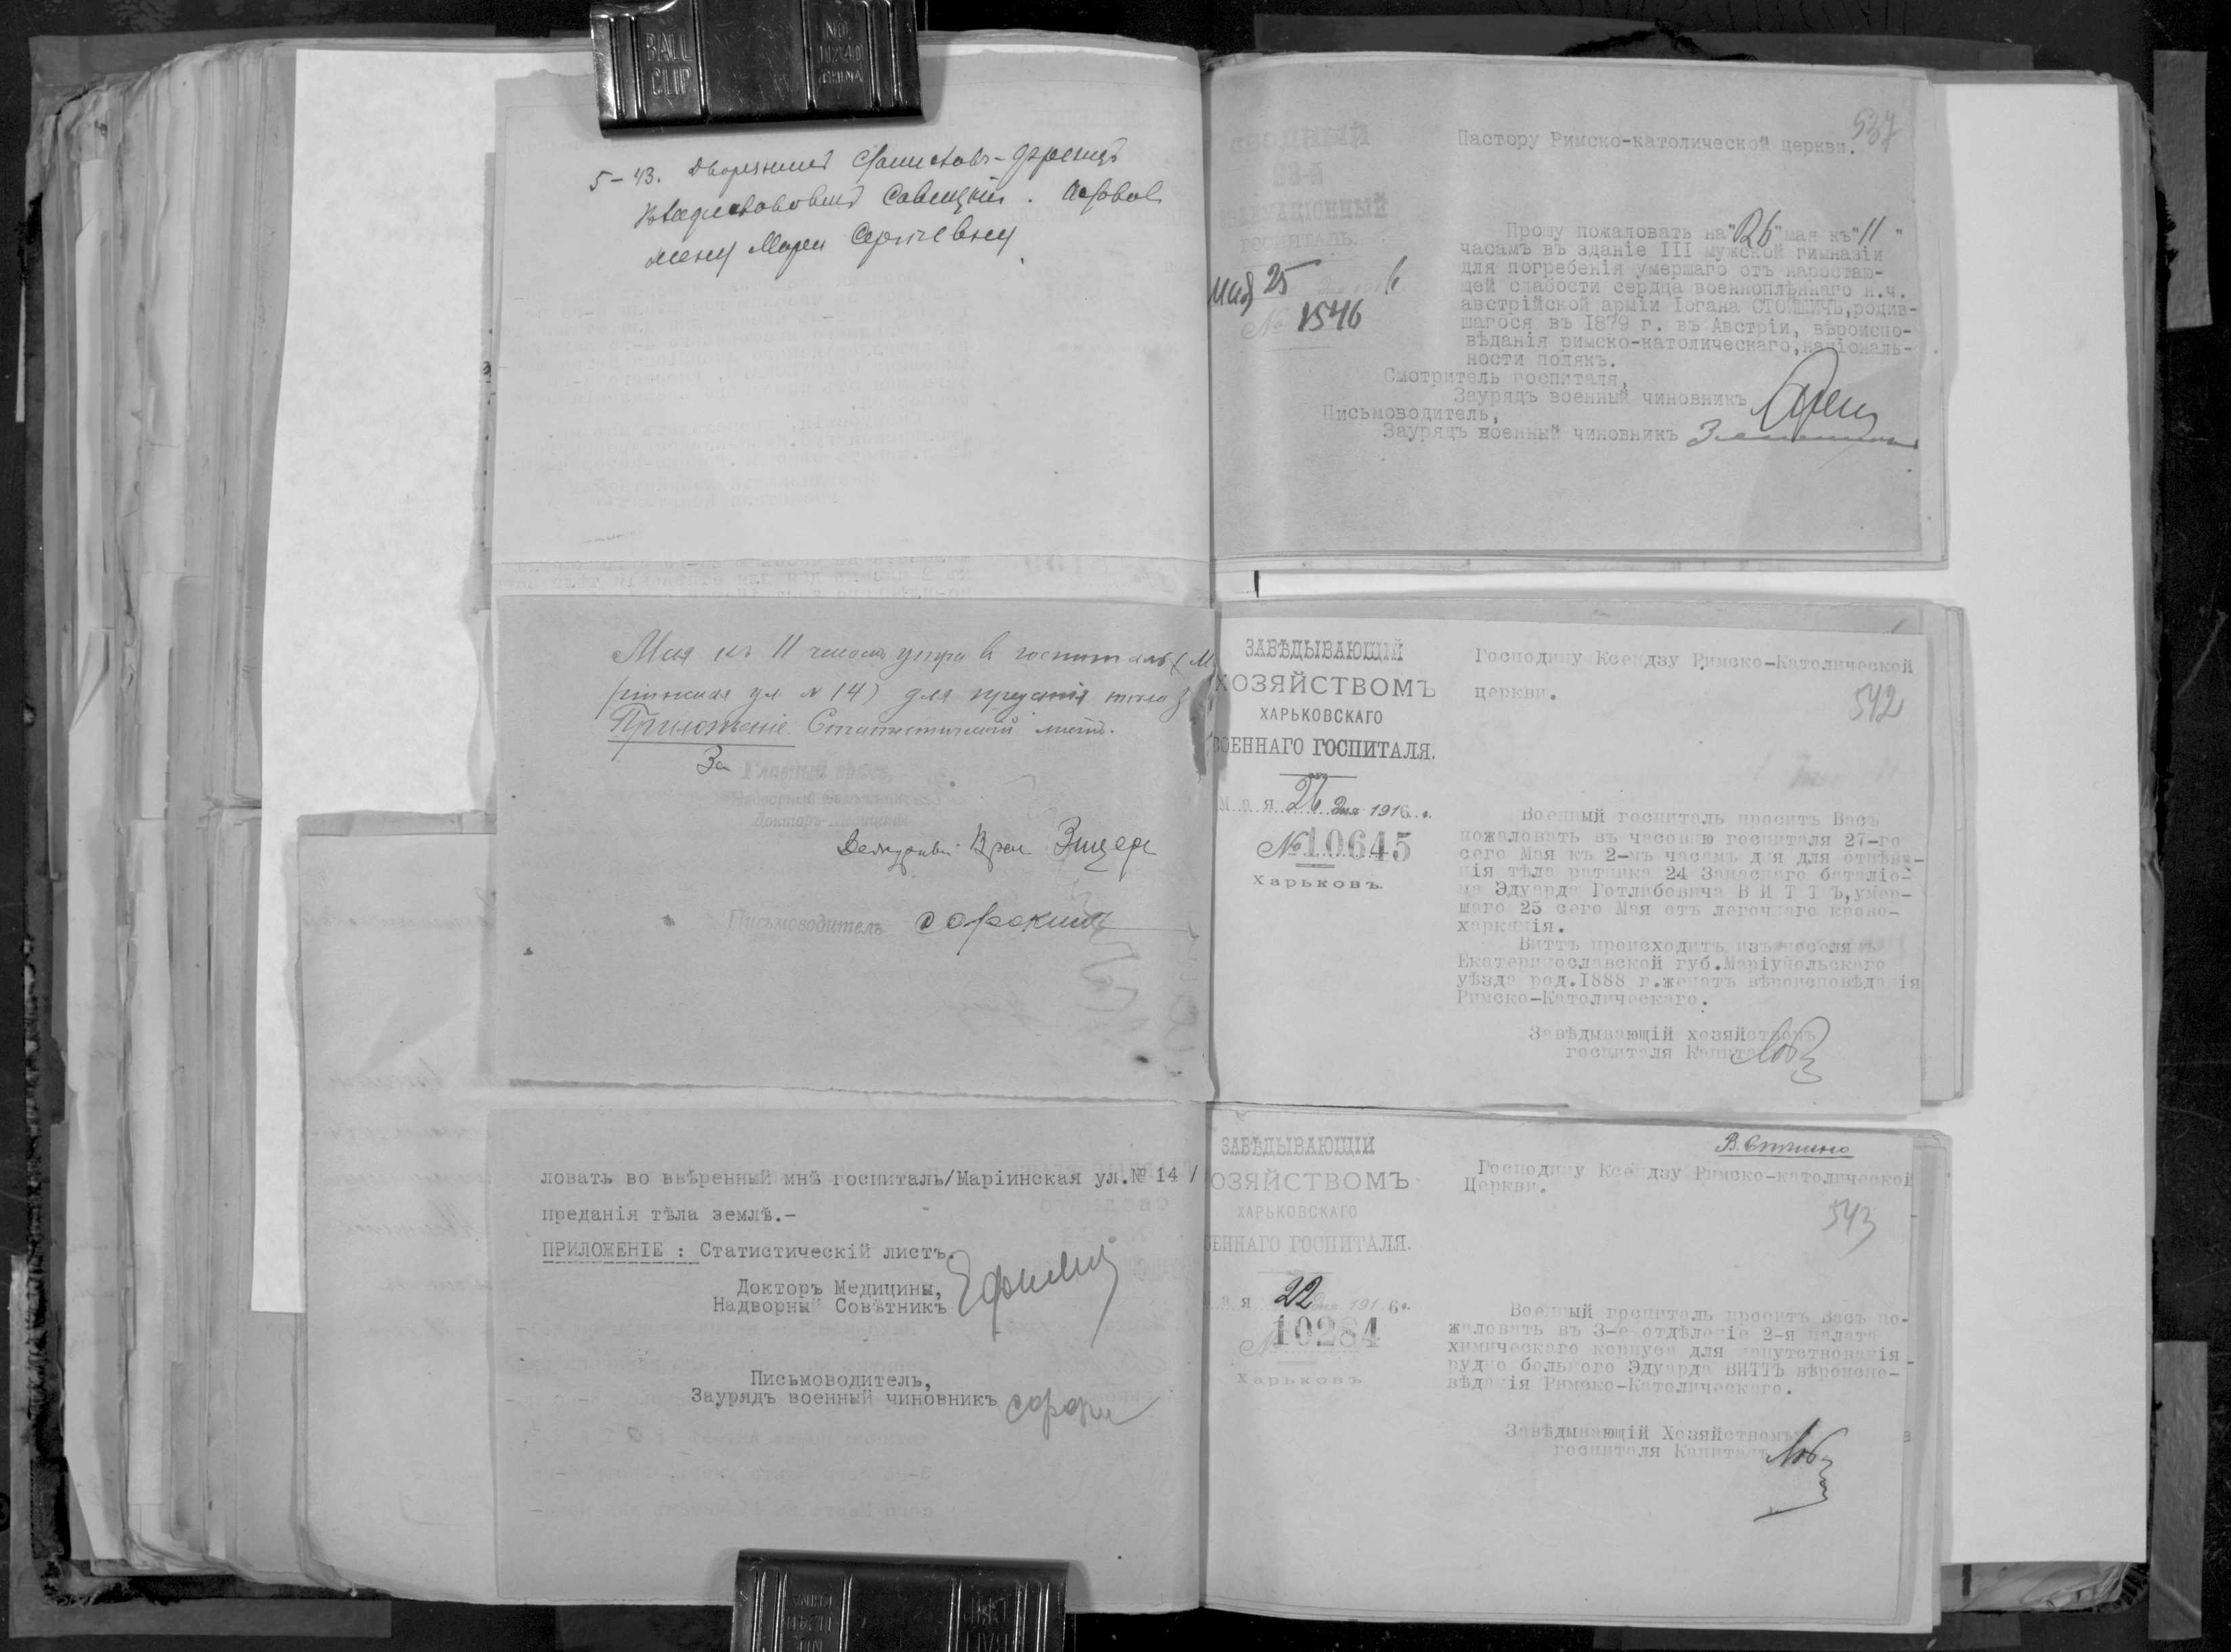 BALL
CLIP
NO.
10240
CHINA
5-43. Дворянинъ
Савицкій.
жену Марію Сергѣевну
Мая къ 11 часамъ утра въ госпиталь
ул № 14) для преданія тѣла
Приложеніе Статистическій листъ.
За Главный врачъ,
Дежурный Врач
Письмоводитель Сорокинъ
ловать во ввѣренный мнѣ госпиталь/Маріинская ул.№ 14 /
преданія тѣла землѣ.-
ПРИЛОЖЕНІЕ : Статистическій листъ.
Докторъ Медицины,
Надворный Совѣтникъ
Письмоводитель,
Заурядъ военный чиновникъ
537
Пастору Римско-католической церкви.
ГОСПИТАЛЬ.
мая 25
№ 1546
Прошу пожаловать на "26" мая къ "11"
часамъ въ зданіе III мужской гимназіи
для погребенія умершаго отъ наростаю-
щей слабости сердца военноплѣннаго н.ч.
австрійской арміи Іогана СТОЙШИЧЪ,родив-
шагося въ 1879 г. въ Австріи, вѣроиспо-
вѣданія римско-католическаго,націоналъ-
ности полякъ.
Смотритель госпиталя,
Заурядъ военный чиновникъ
Письмоводитель,
Заурядъ военный чиновникъ
ЗАВѢДЫВАЮЩІЙ
ХОЗЯЙСТВОМЪ
ХАРЬКОВСКАГО
ВОЕННАГО ГОСПИТАЛЯ.
Мая 26 дня 1916 г.
№ 10645
Харьковъ.
Господину Ксендзу Римско-Католической
церкви.
542
Военный госпиталь проситъ Васъ
пожаловать въ часовню госпиталя 27-го
сего Мая къ 2-мъ часамъ дня для отпѣва-
нія тѣла ратника 24 Запаснаго баталіо-
на Эдуарда Готлибовича ВИТТЪ,умер-
шаго 25 сего Мая отъ легочнаго крово-
харканія.
Виттъ происходитъ изъ поселянъ
Екатеринославской губ.Маріупольскаго
уѣзда род.1888 г.женатъ вѣроисповѣданія
Римско-Католическаго.
Завѣдывающій хозяйствомъ
госпиталя Капитанъ
ЗАВѢДЫВАЮЩІЙ
ОЗЯЙСТВОМЪ
ХАРЬКОВСКАГО
ЕННАГО ГОСПИТАЛЯ.
мая 22 дня 1916 г.
№ 10284
Харьковъ
Господину Ксендзу Римско-католической
Церкви.
543
Военный госпиталь проситъ Васъ по-
жаловать въ 3-е отдѣленіе 2-я палата
химическаго корпуса для напутствованія
рудно больного Эдуарда ВИТТЪ вѣроиспо-
вѣданія Римско-Католическаго.
Завѣдывающій Хозяйствомъ
госпиталя Капитанъ